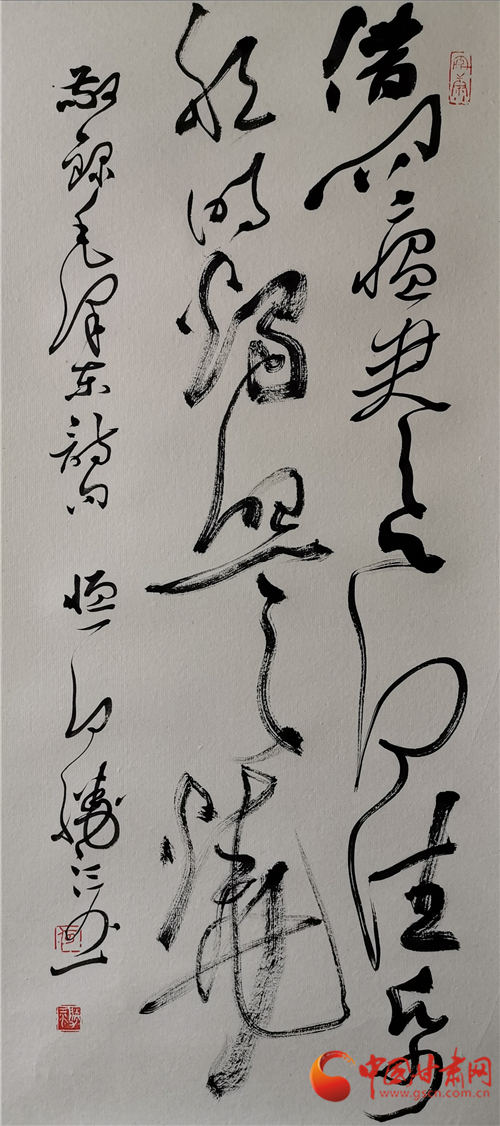 借问瘟君欲何往纸
船明烛照天烧
敬录毛泽东诗句
中国甘肃网
www.gscn.com.cn